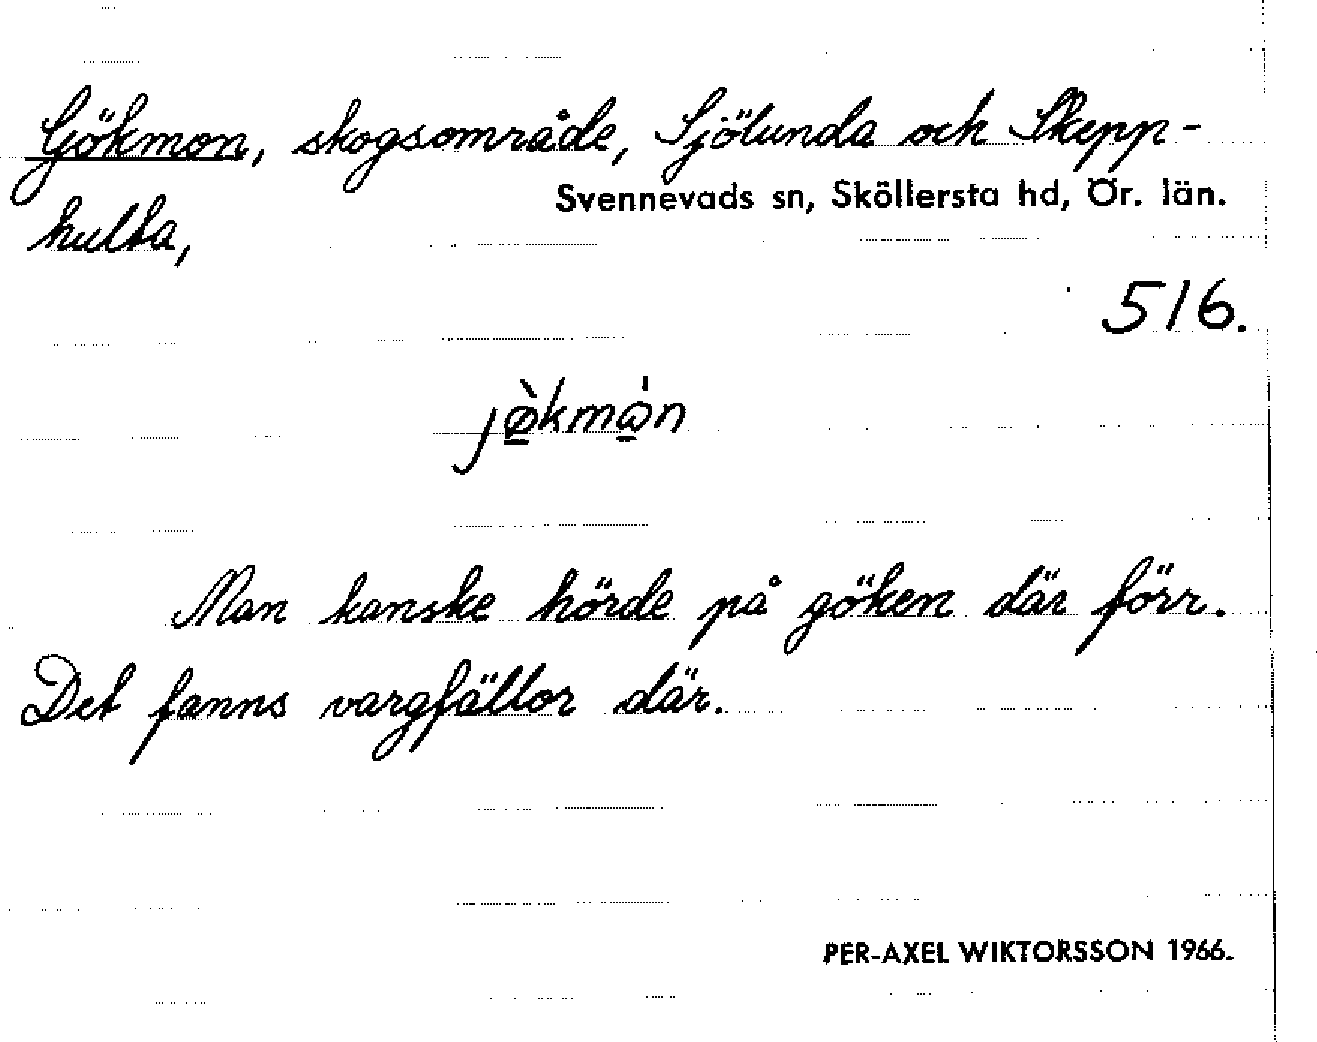 Gökmon, skogsområde, Sjölunda och Skepp-
Svennevads sn, Sköllersta hd, Ör. län.
hulta,
516.
jø̀kmὼn
Man kanske hörde på göken där förr.
Det fanns vargfällor där.
PER-AXEL WIKTORSSON 1966.